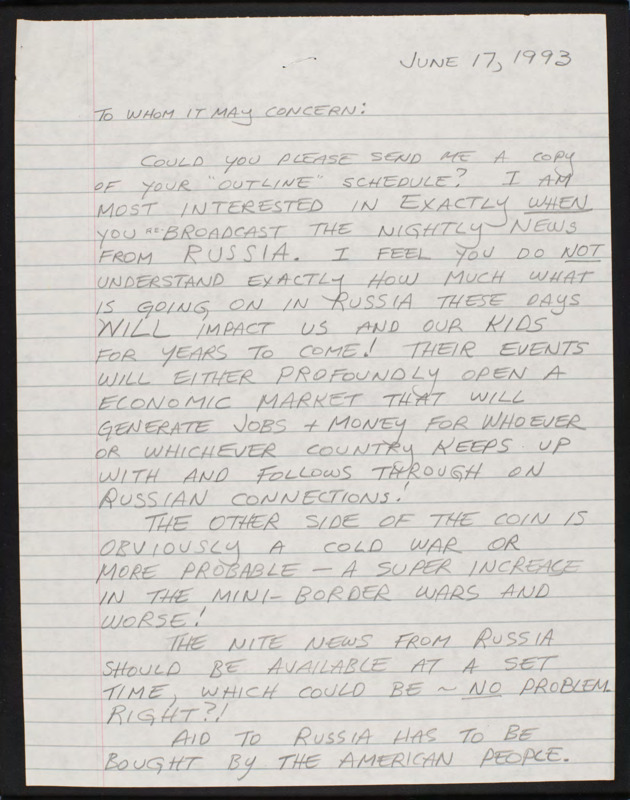 JUNE 17, 1993
TO WHOM IT MAY CONCERN:
COULD YOU PLEASE SEND ME A COPY
OF YOUR "OUTLINE" SCHEDULE? I AM
MOST INTERESTED IN EXACTLY WHEN
YOU RE-BROADCAST THE NIGHTLY NEWS
FROM RUSSIA. I FEEL YOU DO NOT
UNDERSTAND EXACTLY HOW MUCH WHAT
IS GOING ON IN RUSSIA THESE DAYS
WILL IMPACT US AND OUR KIDS
FOR YEARS TO COME! THEIR EVENTS
WILL EITHER PROFOUNDLY OPEN A
ECONOMIC MARKET THAT WILL
GENERATE JOBS + MONEY FOR WHOEVER
OR WHICHEVER COUNTRY KEEPS UP
WITH AND FOLLOWS THROUGH ON
RUSSIAN CONNECTIONS!
THE OTHER SIDE OF THE COIN IS
OBVIOUSLY A COLD WAR OR
MORE PROBABLE — A SUPER INCREASE
IN THE MINI-BORDER WARS AND
WORSE!
THE NITE NEWS FROM RUSSIA
SHOULD BE AVAILABLE AT A SET
TIME, WHICH COULD BE ~ NO PROBLEM
RIGHT?!
AID TO RUSSIA HAS TO BE
BOUGHT BY THE AMERICAN PEOPLE.